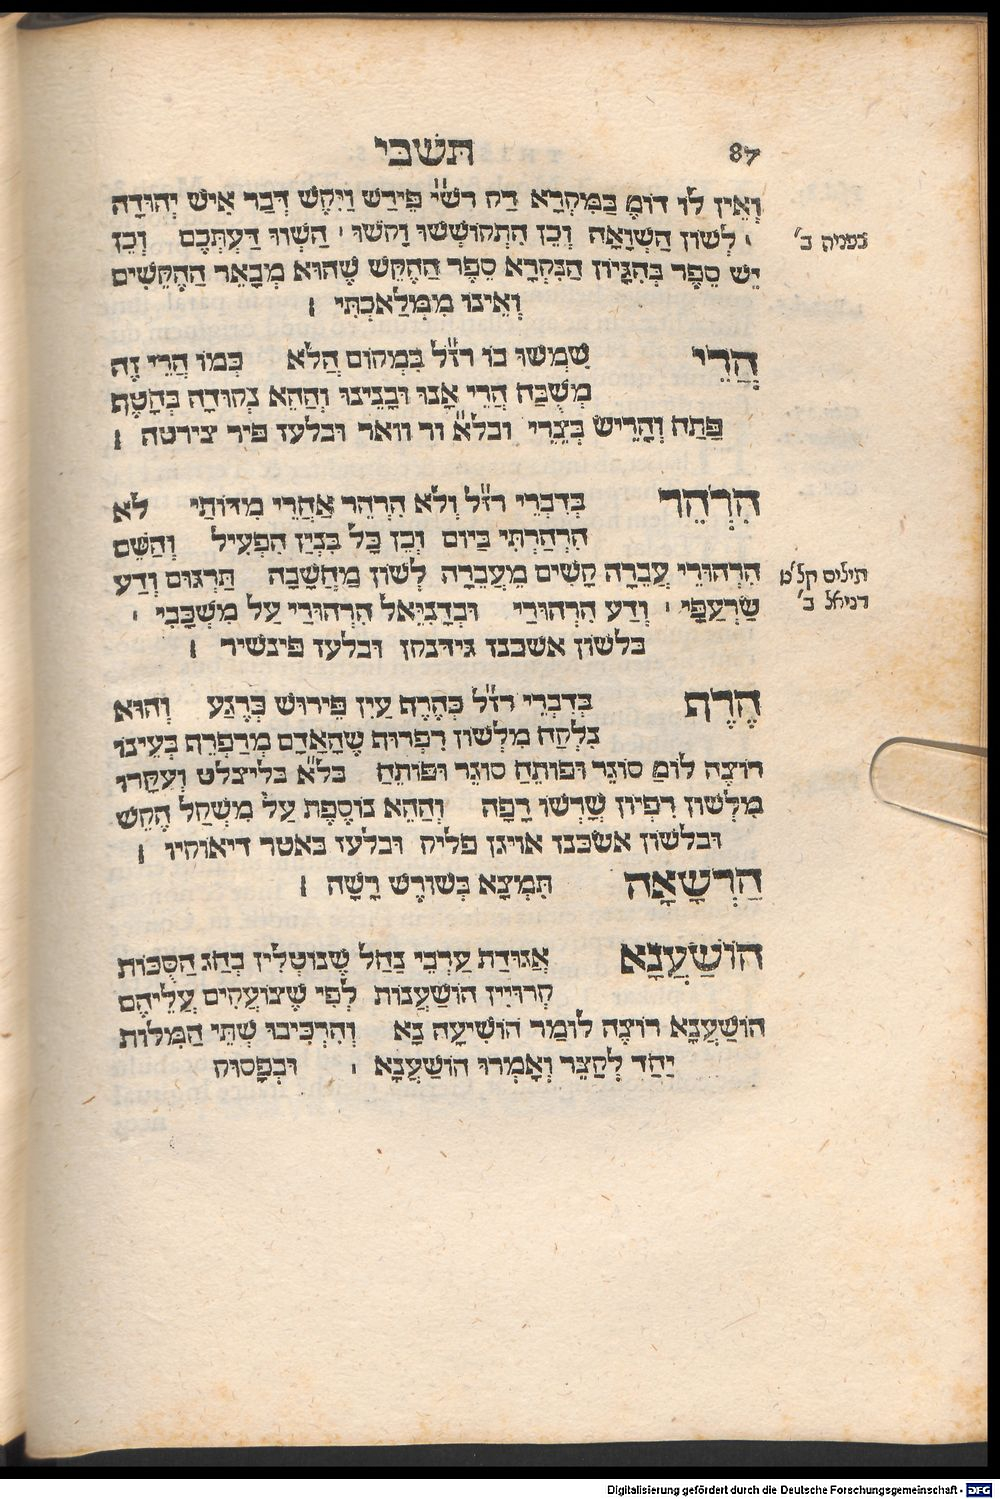 87 תשבי
וְאֵין לו דומֶה בַּמִּקְרָא רַק רש״י פֵּירַשׁ וַיִּקֶשׁ דְּבַר אִישׁ יְהוּדָה
צפניה ב״
׳ לְשׁוֹן הַשְׁוָאָה וְכֵן הִתְקוֹשְׁשׁוּ וָקשׁוּ ׳ הַשְׁווּ דַּעְתְּכֶם וְכֵן
יֵשׁ סֵפֶר בְּהִגָּיוֹן הַנִּקְרָא סֵפֶר הַהֶקֵּשׁ שֶׁהוּא מְבָאֵר הַהֶקֵּשִׁים
וְאֵינוֹ מִמְּלַאכְתִּי ׀
הֲרֵי שִׁמְּשׁוּ בו רז״ל בִּמְקוֹם הֲלֹא כְּמוֹ הֲרֵי זֶה
מְשֻׁבַּח הֲרֵי אָנוּ וּבָנֵינוּ וְהַהֵא נְקוּדָה בְּחָטֶף
פַּתַּח וְהָרֵישׁ בְּצֵרֵי ובל״א ור וואר ובלעז פיר צירטה ׀
הִרְהֵר בְּדִבְרֵי רז״ל וְלֹא הִרְהֵר אַחֲרֵי מִדּוֹתַי לֹא
הִרְהַרְתִּי בַּיּוֹם וְכֵן כָּל בִּנְיַן הִפְעִיל וְהַשֵּׁם
הִרְהוּרֵי עֲבֵרָה קָשִׁים מֵעֲבֵרָה לְשׁוֹן מַחֲשָׁבָה תַּרְגּוּם וְדַע
תילים קל״ט
שַׂרְעַפָּי ׳ וְדַע הִרְהוּרַי וּבְדָנִיֵּאל הִרְהוּרַי עַל מִשְׁכָּבִי ׳
דניאל ב׳
בלשון אשכנז גידנקן ובלעז פינשיר ׀
הֶרֶף בְּדִבְרֵי רז״ל כְּהֶרֶף עַיִן פֵּירוּשׁ כְּרֶגַע וְהוּא
נִלְקַח מִלְּשׁוֹן רִפְרוּף שֶׁהָאָדָם מְרַפְרֵף בְּעֵינוֹ
רוֹצֶה לוֹמַר סוֹגֵר וּפוֹתֵחַ סוֹגֵר וּפוֹתֵחַ בל״א בליצלט וְעִקָּרוֹ
מִלְּשׁוֹן רִפְיוֹן שֶׁרְשׁוֹ רָפָה וְהַהֵא נוֹסֶפֶת עַל מִשְׁקַל הֶקֵּשׁ
ובלשון אשכנז אויגן פליק ובלעז באטר דיאוקיו ׀
הַרְשָׁאָה תִּמְצָא בְּשׁוֹרֶשׁ רָשָׁה ׀
הוֹשַׁעֲנָא אֲגוּדַת עַרְבֵי נַחַל שֶׁנּוֹטְלִין בְּחַג הַסֻּכּוֹת
קְרוּיִין הוֹשַׁעֲנוֹת לְפִי שֶׁצּוֹעֲקִים עֲלֵיהֶם
הוֹשַׁעֲנָא רוֹצֶה לוֹמַר הוֹשִׁיעָה נָּא וְהִרְכִּיבוּ שְׁתֵּי הַמִּלּוֹת
יַחַד לְקַצֵּר וְאָמְרוּ הוֹשַׁעֲנָא ׳ וּבְפָסוּק
Digitalisierung gefördert durch die Deutsche Forschungsgemeinschaft - DFG